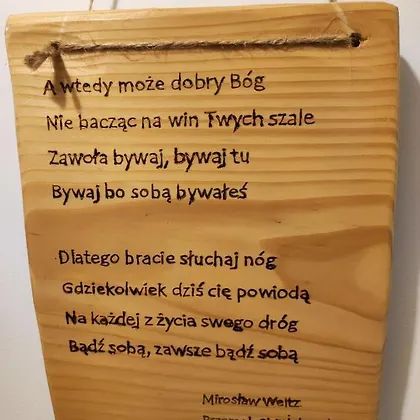 A wtedy może dobry Bóg
Nie bacząc na win Twych szale
Zawoła bywaj, bywaj tu
Bywaj bo sobą bywałeś
Dlatego bracie słuchaj nóg
Gdziekolwiek dziś cię powiodą
Na każdej z życia swego dróg
Bądź sobą, zawsze bądź sobą
Mirosław Weltz